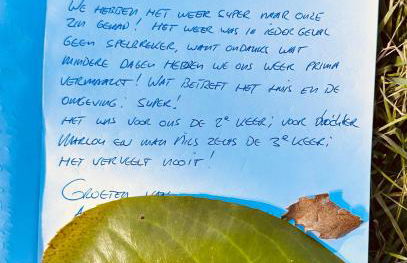 WE HEBBEN HET WEER SUPER NAAR ONZE
ZIN GEHAD! HET WEER WAS IN IEDER GEVAL
GEEN SPELBREKER, WANT ONDANKS WAT
MINDERE DAGEN HEBBEN WE ONS WEER PRIMA
VERMAAKT! WAT BETREFT HET HUIS EN DE
OMGEVING: SUPER!
HET WAS VOOR ONS DE 2e KEER; VOOR DOCHTER
MARLOU EN MAN NILS ZELFS DE 3e KEER;
HET VERVEELT NOOIT!
GROETEN VAN